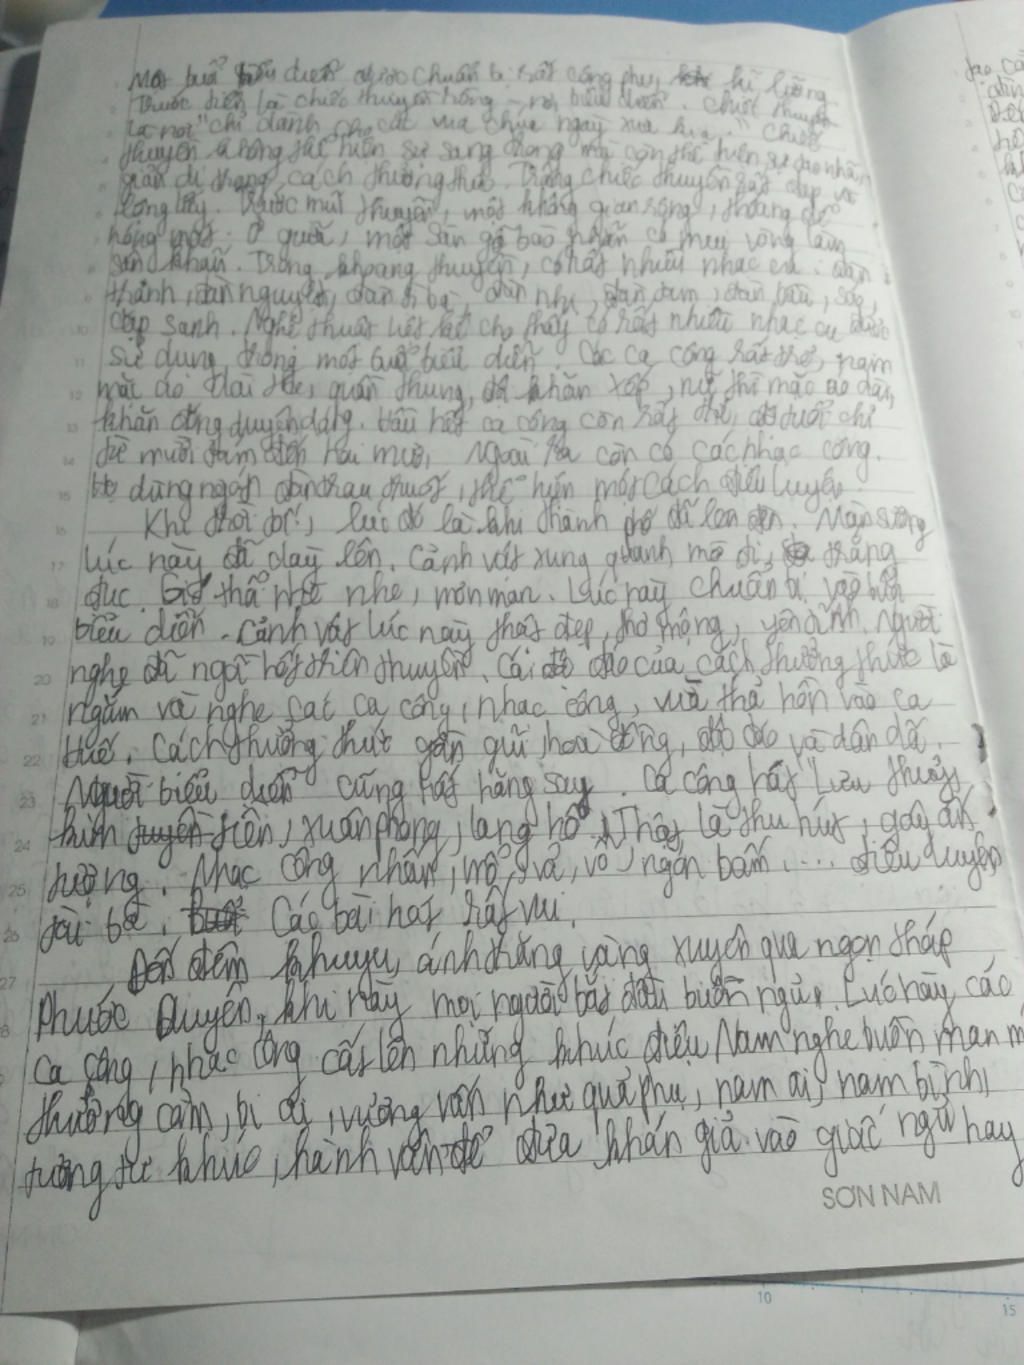 Một buổi biểu diễn được chuẩn bị rất công phu, kĩ lưỡng.
Trước tiên là chiếc thuyền rồng – nơi biểu diễn. Chiếc thuyền
là nơi "chỉ dành cho các vua chúa ngày xưa kia." Chiếc
thuyền không thể hiện sự sang trọng mà còn thể hiện sự tao nhã,
giản dị trong cách thưởng thức. Trong chiếc thuyền rất đẹp và
lộng lẫy. Trước mũi thuyền, một không gian rộng, thoáng để
hóng mát. Ở giữa, một sàn gỗ bào nhẵn có mui vòng làm
sân khấu. Trong khoang thuyền, có rất nhiều nhạc cụ: đàn
thanh, đàn nguyệt, đàn tì bà, đàn nhị, đàn tam, đàn bầu, sáo,
cặp sanh. Nghệ thuật liệt kê cho thấy có rất nhiều nhạc cụ được
sử dụng trong một buổi biểu diễn. Các ca công rất trẻ, nam
mặc áo dài the, quần thụng, khăn xếp, nữ thì mặc áo dài,
khăn đóng duyên dáng. Hầu hết ca công còn rất trẻ, độ tuổi chỉ
từ mười tám đến hai mươi. Ngoài ra còn có các nhạc công.
dùng ngón đàn trau chuốt, thể hiện một cách điêu luyện.
Khi trời tối, lúc đó là khi thành phố đã lên đèn. Màn sương
lúc này đã dày lên. Cảnh vật xung quanh mờ đi, trăng
đục. Gió thổi nhè nhẹ, mơn man. Lúc này chuẩn bị vào buổi
biểu diễn. Cảnh vật lúc này thật đẹp, thơ mộng, yên bình. Người
nghe đã ngồi hết trên thuyền. Cái độc đáo của cách thưởng thức là
ngắm và nghe các ca công, nhạc công, vừa thả hồn vào ca
Huế. Cách thưởng thức gần gũi, hoà đồng, độc đáo và dân dã.
Người biểu diễn cũng rất hăng say. Ca công hát "Lưu thuỷ,
kim tiền, xuân phong, long hổ". Thật là thu hút, gây ấn
tượng. Nhạc công nhấn, mổ, vả, vỗ, ngón bấm, ... điêu luyện
tài ba. Các bài hát rất vui.
Đến đêm khuya, ánh trăng vàng xuyên qua ngọn tháp
Phước Duyên, khi này mọi người bắt đầu buồn ngủ. Lúc này các
ca công, nhạc công cất lên những khúc điệu Nam nghe buồn man m
thương cảm, bi ai, vương vấn như quả phụ, nam ai, nam bình,
tương tư khúc, hành vân để đưa khán giả vào giấc ngủ hay
SƠN NAM
10
15